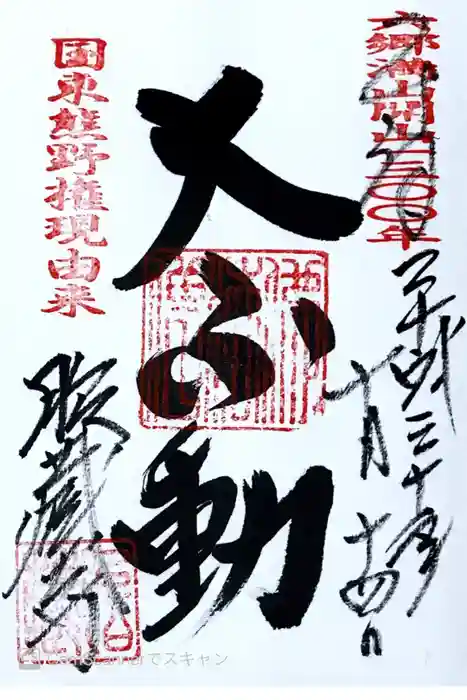 六郷満山開山一三〇〇年
平成三十年
十月十四日
大ふ動
国東熊野権現由来
胎蔵寺
CamScannerでスキャン